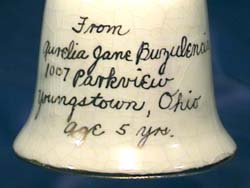 From
Aurelia Jane
1007 Parkview
Youngstown, Ohio
age 5 yrs.